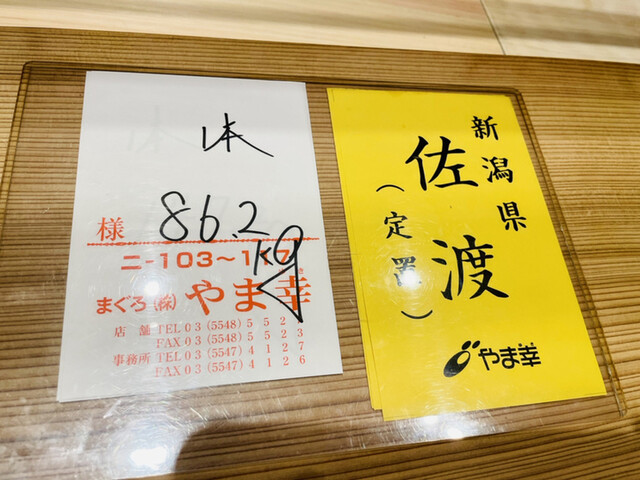 本
86.2
kg
様
ニ-103~117
まぐろ(株)やま幸
店舗 TEL03(5548)5523
FAX03(5548)5523
事務所 TEL03(5547)4127
FAX03(5547)4126
新潟県
佐渡
(定置)
やま幸